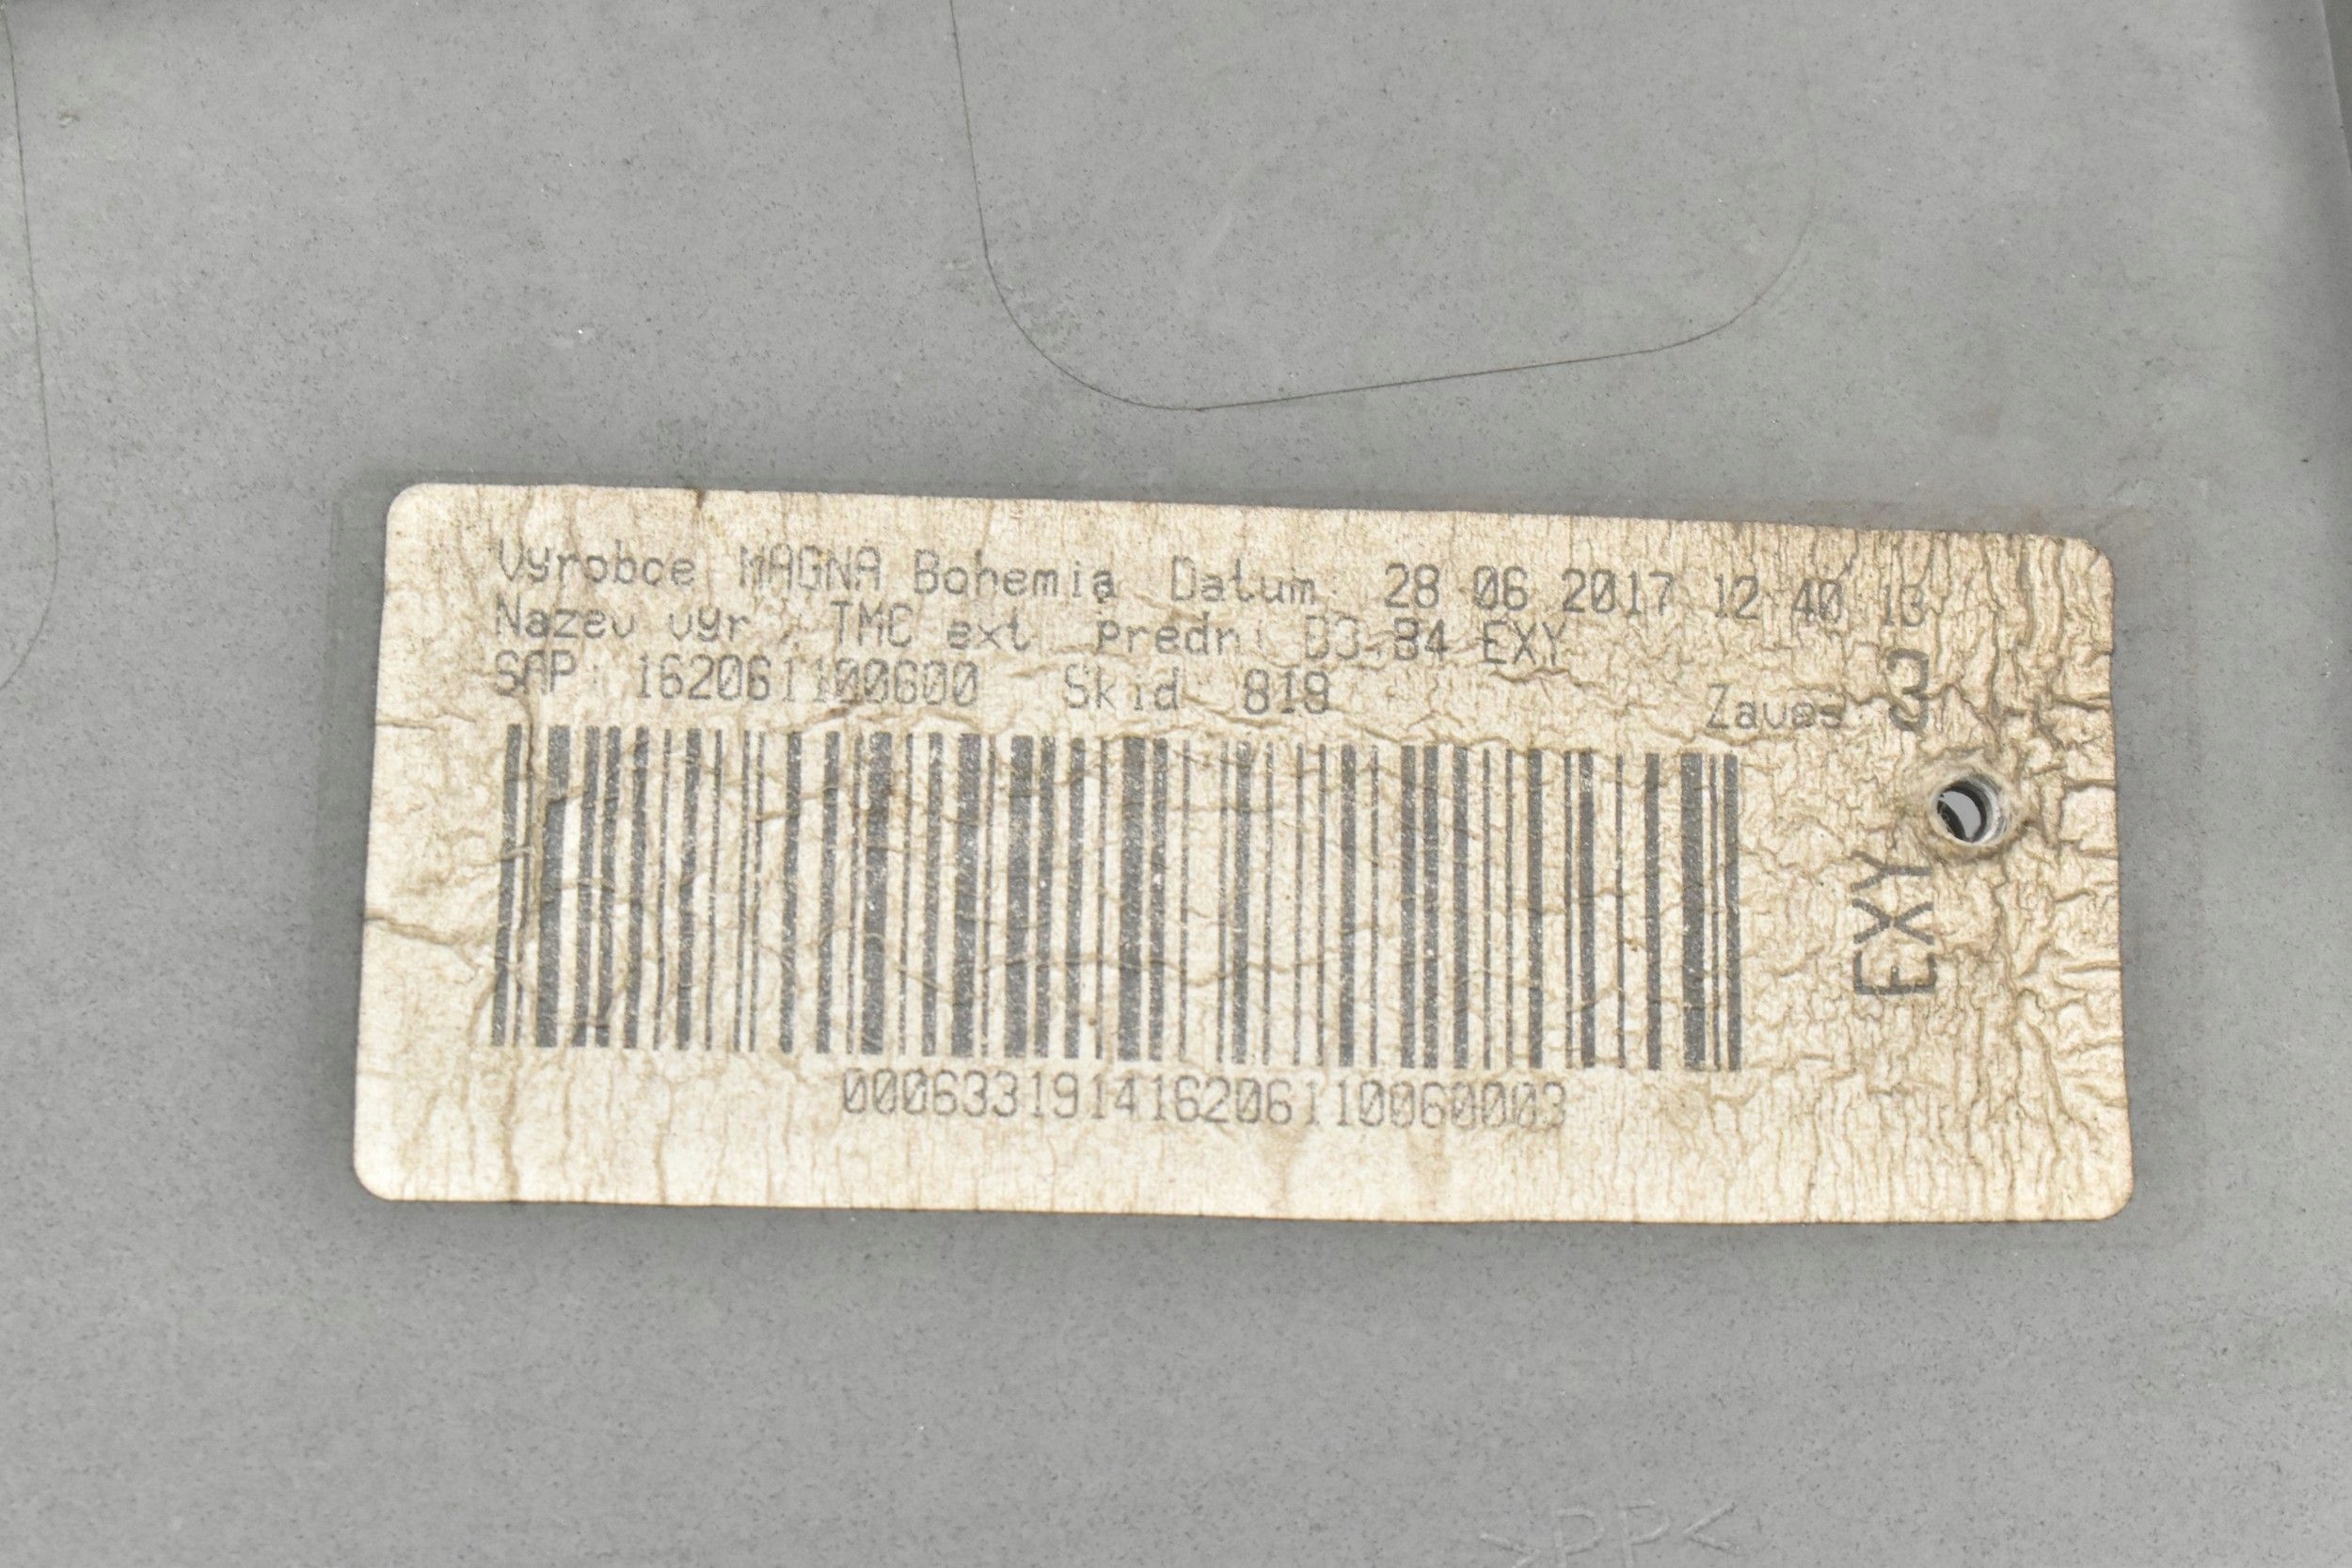 Vyrobce MAGNA Bohemia Datum: 28 06 2017 12 40 13
Nazev vyr : TMC ext predni B3.B4 EXY
SAP: 162061100600 Skid 819
Zaves: 3
EXY
00063319141620611006000​3
>PP<